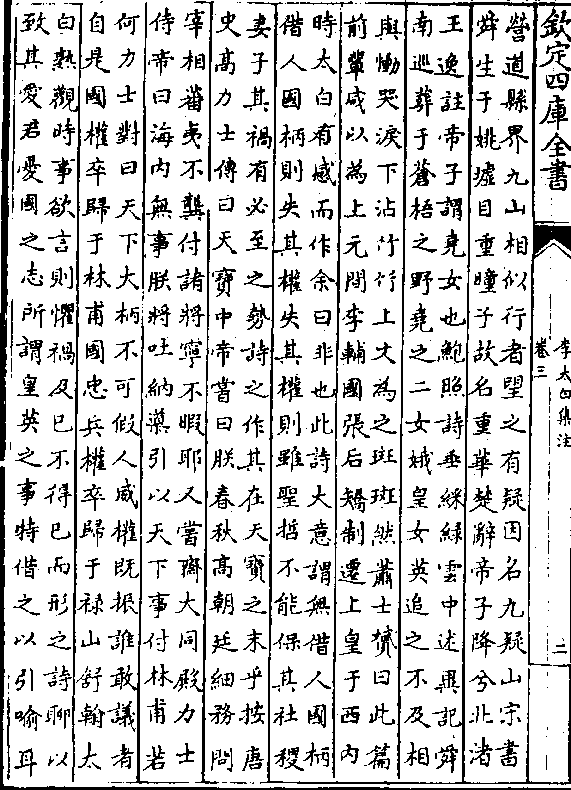 欽定四庫全書
李太白集注
卷三
二
營道縣界九山相似行者望之有疑因名九疑山宋書
舜生于姚墟目重瞳子故名重華楚辭帝子降兮北渚
王逸註帝子謂堯女也鮑照詩垂綵綠雲中述異記舜
南巡葬于蒼梧之野堯之二女娥皇女英追之不及相
與慟哭淚下沾竹竹上文為之斑斑然蕭士贇曰此篇
前輩咸以為上元間李輔國張后矯制遷上皇于西内
時太白有感而作余曰非也此詩大意謂無借人國柄
借人國柄則失其權失其權則雖聖哲不能保其社稷
妻子其禍有必至之勢詩之作其在天寳之末乎按唐
史髙力士傳曰天寳中帝嘗曰朕春秋髙朝廷細務問
宰相蕃夷不龔付諸將寧不暇耶又嘗齋大同殿力士
侍帝曰海内無事朕將吐納藥引以天下事付林甫若
何力士對曰天下大柄不可假人威權既振誰敢議者
自是國權卒歸于林甫國忠兵權卒歸于禄山舒翰太
白熟觀時事欲言則懼禍及己不得已而形之詩聊以
致其愛君憂國之志所謂皇英之事特借之以引喻耳